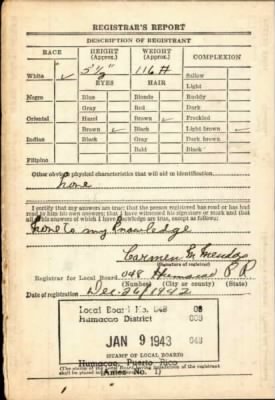 REGISTRAR'S REPORT
DESCRIPTION OF REGISTRANT
RACE HEIGHT (Approx.) WEIGHT (Approx.) COMPLEXION
White ✓ 5' 1/2" 116 # Sallow
EYES HAIR Light
Negro Blue Blonde Ruddy
Gray Red Dark
Oriental Hazel Brown ✓ Freckled
Brown ✓ Black Light brown ✓
Indian Black Gray Dark brown
Bald Black
Filipino
Other obvious physical characteristics that will aid in identification
None
I certify that my answers are true; that the person registered has read or has had
read to him his own answers; that I have witnessed his signature or mark and that
all of his answers of which I have knowledge are true, except as follows:
None to my knowledge
Carmen M.
(Signature of registrar)
Registrar for Local Board 048 Humacao P R
(Number) (City or county) (State)
Date of registration Dec. 26/1942
Local Board No. 048 08
Humacao District 009
JAN 9 1943 048
STAMP OF LOCAL BOARD
Humacao, Puerto Rico
(The stamp of the Local Board
shall be placed in
(Anex No. 1)